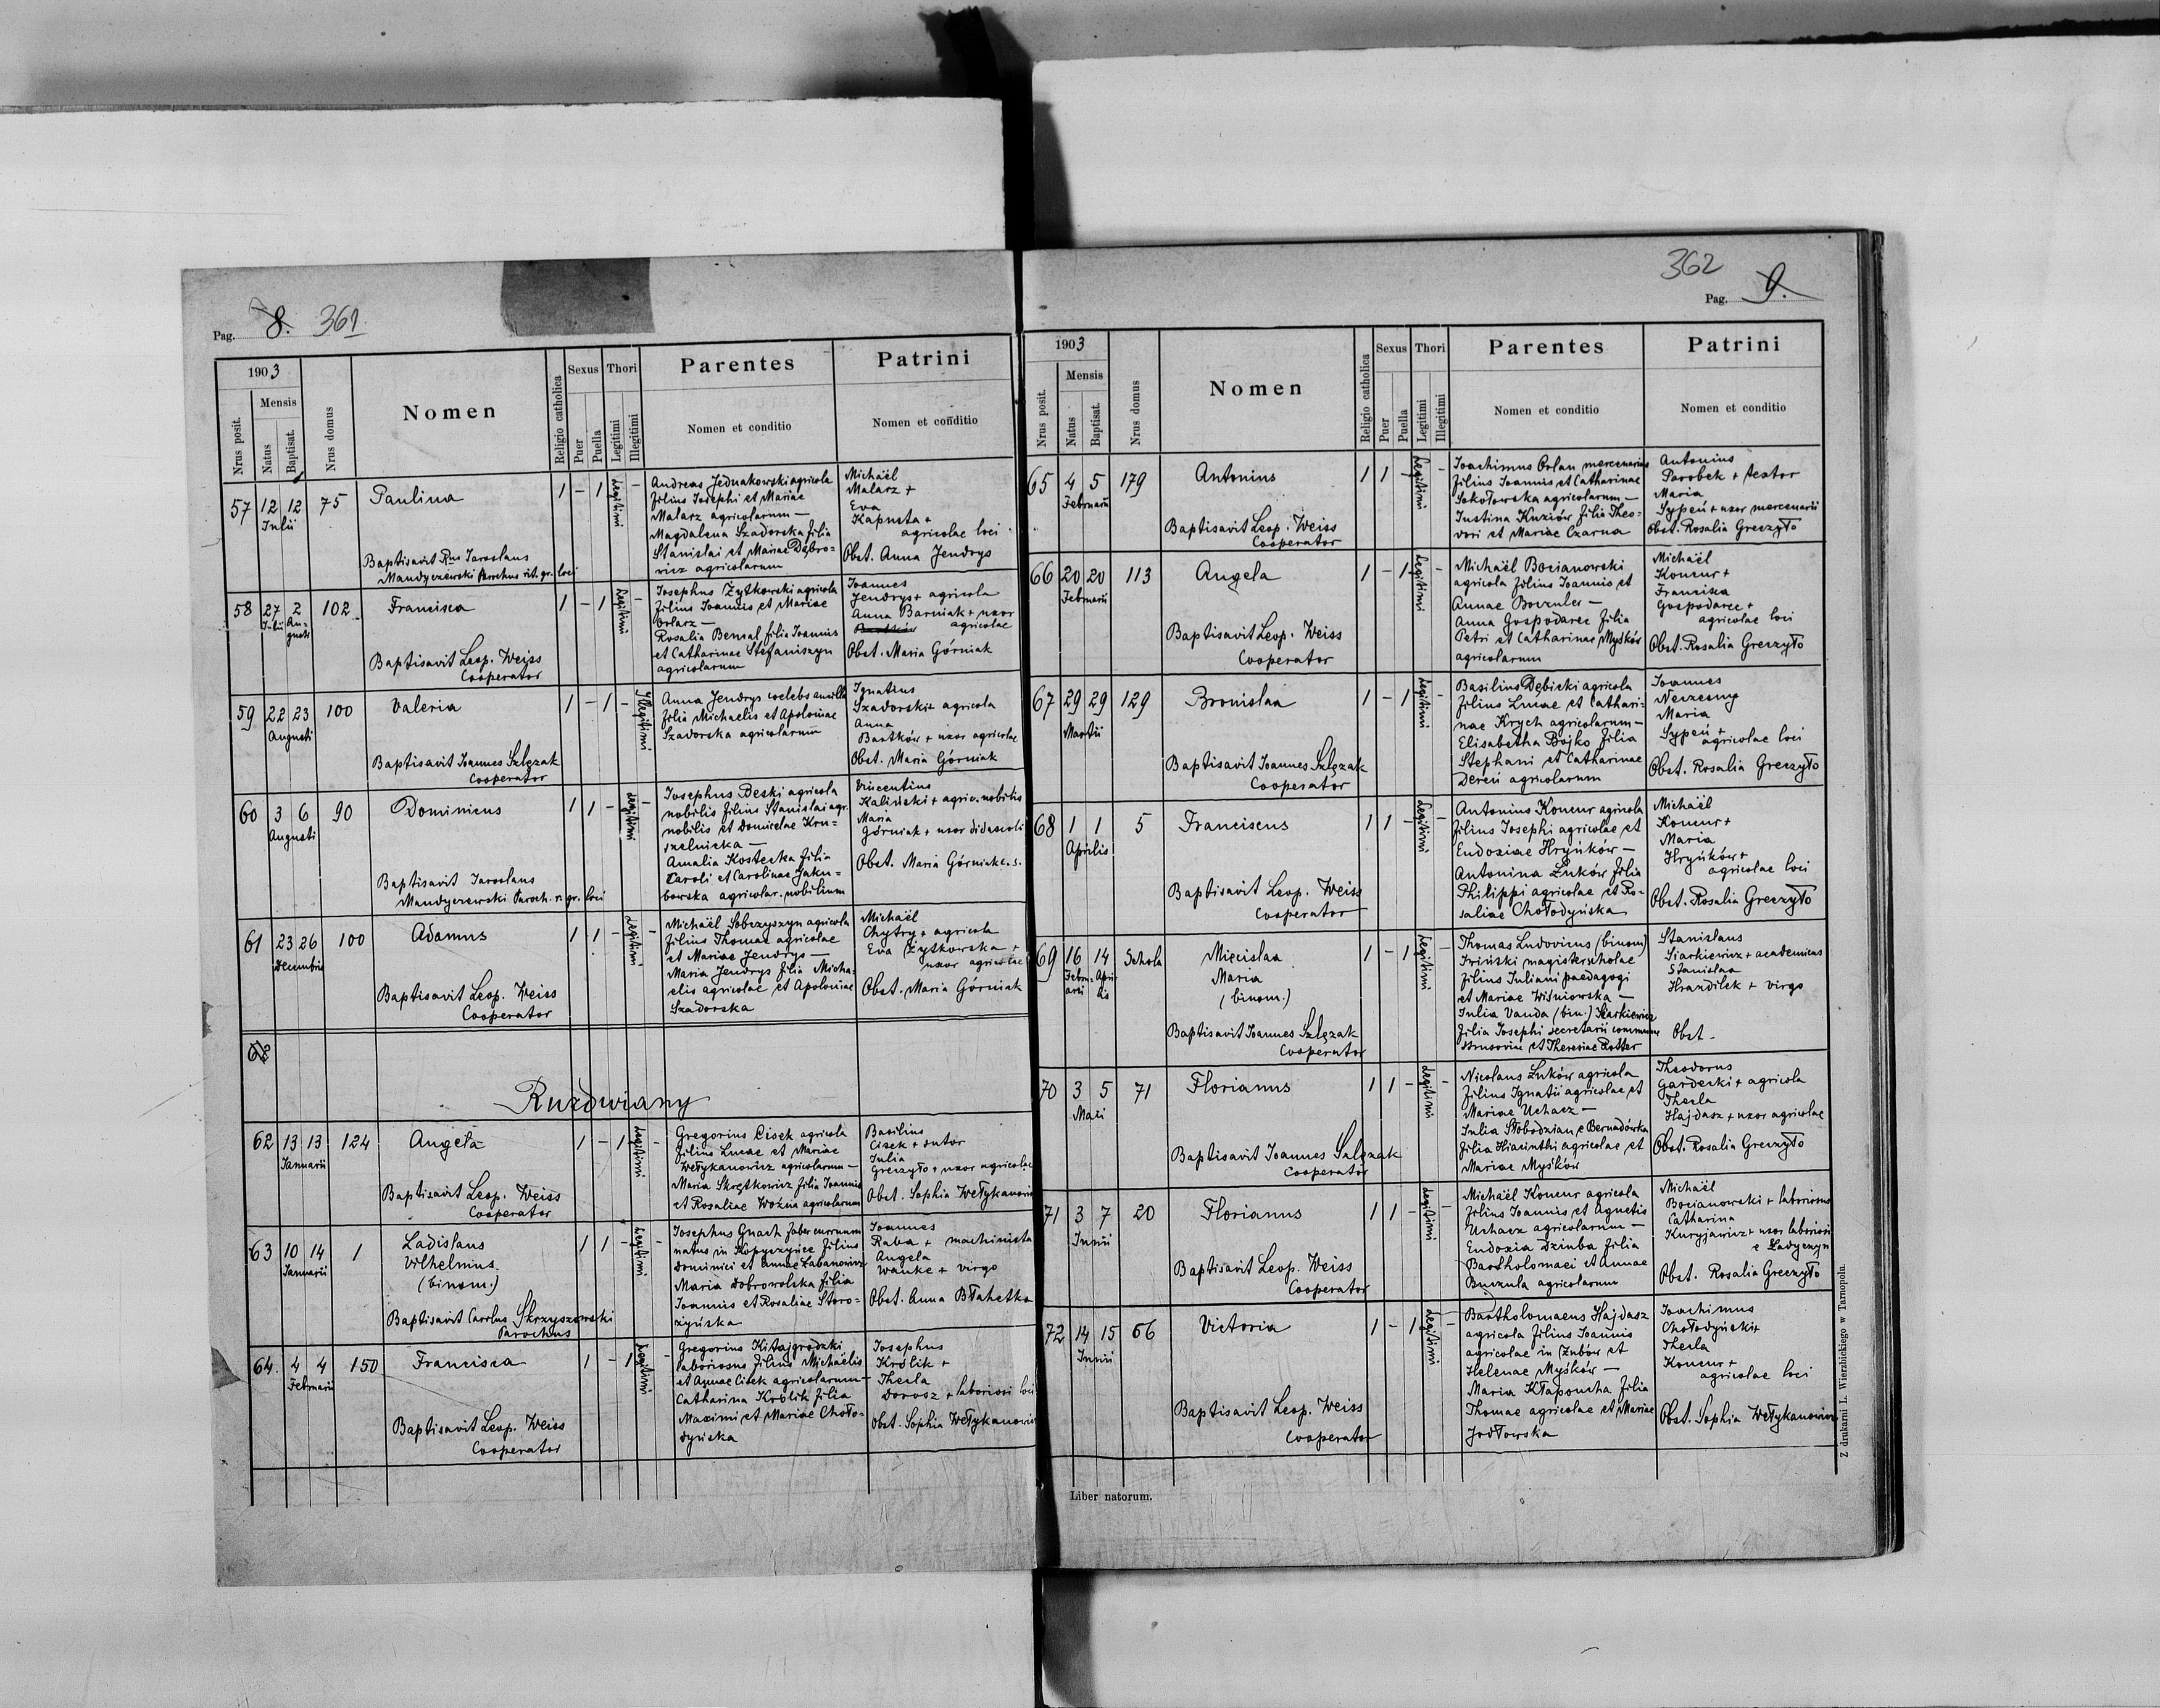 Pag. 8. 361
1903
Mensis
Nrus posit.
Natus
Baptisat.
Nrus domus
Nomen
Religio catholica
Sexus
Puer
Puella
Thori
Legitimi
Illegitimi
Parentes
Nomen et conditio
Patrini
Nomen et conditio
57 12 12 75 Paulina 1 – 1 Legitimi –
Julii
Baptisavit Rus Jaroslaus
Mandyczewski Parochus rit. gr. loci
Andreas Jednakowski agricola
filius Josephi et Mariae
Malarz agricolarum –
Magdalena Szadorska filia
Stanislai et Mariae Dąbro=
wicz agricolarum
Michaël
Malarz +
Eva
Kapusta +
agricolae loci
Obst. Anna Jendrys
58 27 2 102 Francisca 1 – 1 Legitimi –
Julii Au=
gusti
Baptisavit Leop. Weiss
Cooperator
Josephus Żytkowski agricola
filius Joannis et Mariae
Orlarz –
Rosalia Bemal filia Joannis
et Catharinae Stefaniszyn
agricolarum
Joannes
Jendrys + agricola
Anna Barniak + uxor
agricolae
Obst. Maria Górniak
59 22 23 100 Valeria 1 – 1 – Illegitimi
Augusti
Baptisavit Joannes Szlęzak
Cooperator
Anna Jendrys coelebs ancilla
filia Michaelis et Apoloniae
Szadorska agricolarum
Ignatius
Szadorski + agricola
Anna
Bartków + uxor agricolae
Obst. Maria Górniak
60 3 6 90 Dominicus 1 1 – Legitimi –
Augusti
Baptisavit Jaroslaus
Mandyczewski Paroch. r. gr. loci
Josephus Beski agricola
nobilis filius Stanislai agr.
nobilis et Domicelae Kru=
szelnicka –
Amalia Kostecka filia
Caroli et Carolinae Jaku=
bowska agricolar. nobilium
Vincentius
Kaliński + agric. nobilis
Maria
Górniak + uxor didascoli
Obst. Maria Górniak e. s.
61 23 26 100 Adamus 1 1 – Legitimi –
Decembris
Baptisavit Leop. Weiss
Cooperator
Michaël Sobczyszyn agricola
filius Thomae agricolae
et Mariae Jendrys –
Maria Jendrys filia Micha=
elis agricolae et Apoloniae
Szadorska
Michaël
Chytry + agricola
Eva Żytkowska +
uxor agricolae
Obst. Maria Górniak
62
Ruzdwiany
62 13 13 124 Angela 1 – 1 Legitimi –
Januarii
Baptisavit Leop. Weiss
Cooperator
Gregorius Cisek agricola
filius Lucae et Mariae
Wełykanowicz agricolarum –
Maria Skrętkowicz filia Joannis
et Rosaliae Woźna agricolarum
Basilius
Cisek + sutor
Julia
Greczyło + uxor agricolae
Obst. Sophia Wełykanowicz
63 10 14 1 Ladislaus 1 1 – Legitimi –
Januarii
Vilhelmus
(binom.)
Baptisavit Carolus Skrzyszowski
Parochus
Josephus Gnach faber currum
natus in Kopyczyńce filius
Dominici et Annae Łabanowicz
Maria Dobrowolska filia
Joannis et Rosaliae Storo=
żyńska
Joannes
Raba + machinista
Angela
Wanke + virgo
Obst. Anna Błahetka
64. 4 4 150 Francisca 1 – 1 Legitimi –
Februarii
Baptisavit Leop. Weiss
Cooperator
Gregorius Kitajgrodzki
laboriosus filius Michaëlis
et Annae Cisek agricolarum –
Catharina Królik filia
Maximi et Mariae Choło=
dyńska
Josephus
Królik +
Thecla
Dorosz + laboriosi loci
Obst. Sophia Wełykanowicz
362
Pag. 9.
1903
Mensis
Nrus posit.
Natus
Baptisat.
Nrus domus
Nomen
Religio catholica
Sexus
Puer
Puella
Thori
Legitimi
Illegitimi
Parentes
Nomen et conditio
Patrini
Nomen et conditio
65 4 5 179 Antonius 1 1 – Legitimi –
Februarii
Baptisavit Leop. Weiss
Cooperator
Joachimus Orlan mercenarius
filius Joannis et Catharinae
Sokołowska agricolarum –
Justina Kuziów filia Theo=
dori et Mariae Czarna
Antonius
Parobek + tector
Maria
Sypeń + uxor mercenarii
Obst. Rosalia Greczyło
66 20 20 113 Angela 1 – 1 Legitimi –
Februarii
Baptisavit Leop. Weiss
Cooperator
Michaël Bocianowski
agricola filius Joannis et
Annae –
Anna Gospodarec filia
Petri et Catharinae Myśków
agricolarum
Michaël
Koncur +
Francisca
Gospodarec +
agricolae loci
Obst. Rosalia Greczyło
67 29 29 129 Bronislaa 1 – 1 Legitimi –
Martii
Baptisavit Joannes Szlęzak
Cooperator
Basilius Dębicki agricola
filius Lucae et Cathari=
nae Krych agricolarum –
Elisabetha Bojko filia
Stephani et Catharinae
Dereń agricolarum
Joannes
Neczesny
Maria
Sypeń +
agricolae loci
Obst. Rosalia Greczyło
68 1 1 5 Franciscus 1 1 – Legitimi –
Aprilis
Baptisavit Leop. Weiss
Cooperator
Antonius Koncur agricola
filius Josephi agricolae et
Eudoxiae Hryńków –
Antonina Łuków filia
Philippi agricolae et Ro=
saliae Chołodyńska
Michaël
Koncur +
Maria
Hryńków +
agricolae loci
Obst. Rosalia Greczyło
69 16 14 Schola Miecislaa 1 – 1 Legitimi –
Febru= Apri=
arii lis
Maria
(binom.)
Baptisavit Joannes Szlęzak
Cooperator
Thomas Ludovicus (binom)
Iwiński magister scholae
filius Juliani paedagogi
et Mariae Wiśniowska –
Julia Vanda (bin.) Siarkiewicz
filia Josephi secretarii communae
Strusoviae et Theresiae Rotter
Stanislaus
Siarkiewicz + academicus
Stanislaa
Hrazdilek + virgo
Obst –
70 3 5 71 Florianus 1 1 – Legitimi –
Maii
Baptisavit Joannes Szlęzak
Cooperator
Nicolaus Łuków agricola
filius Ignatii agricolae et
Mariae Uchacz –
Julia Słobodzian e Bernadówka
filia Hiacinthi agricolae et
Mariae Myśków
Theodorus
Gardecki + agricola
Thecla
Hajdasz + uxor agricolae
Obst. Rosalia Greczyło
71 3 7 20 Florianus 1 1 – Legitimi –
Junii
Baptisavit Leop. Weiss
Cooperator
Michaël Koncur agricola
filius Joannis et Agnetis
Uchacz agricolarum –
Eudoxia Dziuba filia
Bartholomaei et Annae
Burzula agricolarum
Michaël
Bocianowski + laboriosus
Catharina
Kuryjawicz + uxor laboriosi
e Ładyczyn
Obst. Rosalia Greczyło
72 14 15 66 Victoria 1 – 1 Legitimi –
Junii
Baptisavit Leop. Weiss
Cooperator
Bartholomaeus Hajdasz
agricola filius Joannis
agricolae in Zubów et
Helenae Myśków –
Maria Kłapoucha filia
Thomae agricolae et Mariae
Jodłowska
Joachimus
Chołodyński +
Thecla
Koncur +
agricolae loci
Obst. Sophia Wełykanowicz
Liber natorum.
Z drukarni L. Wierzbickiego w Tarnopolu.